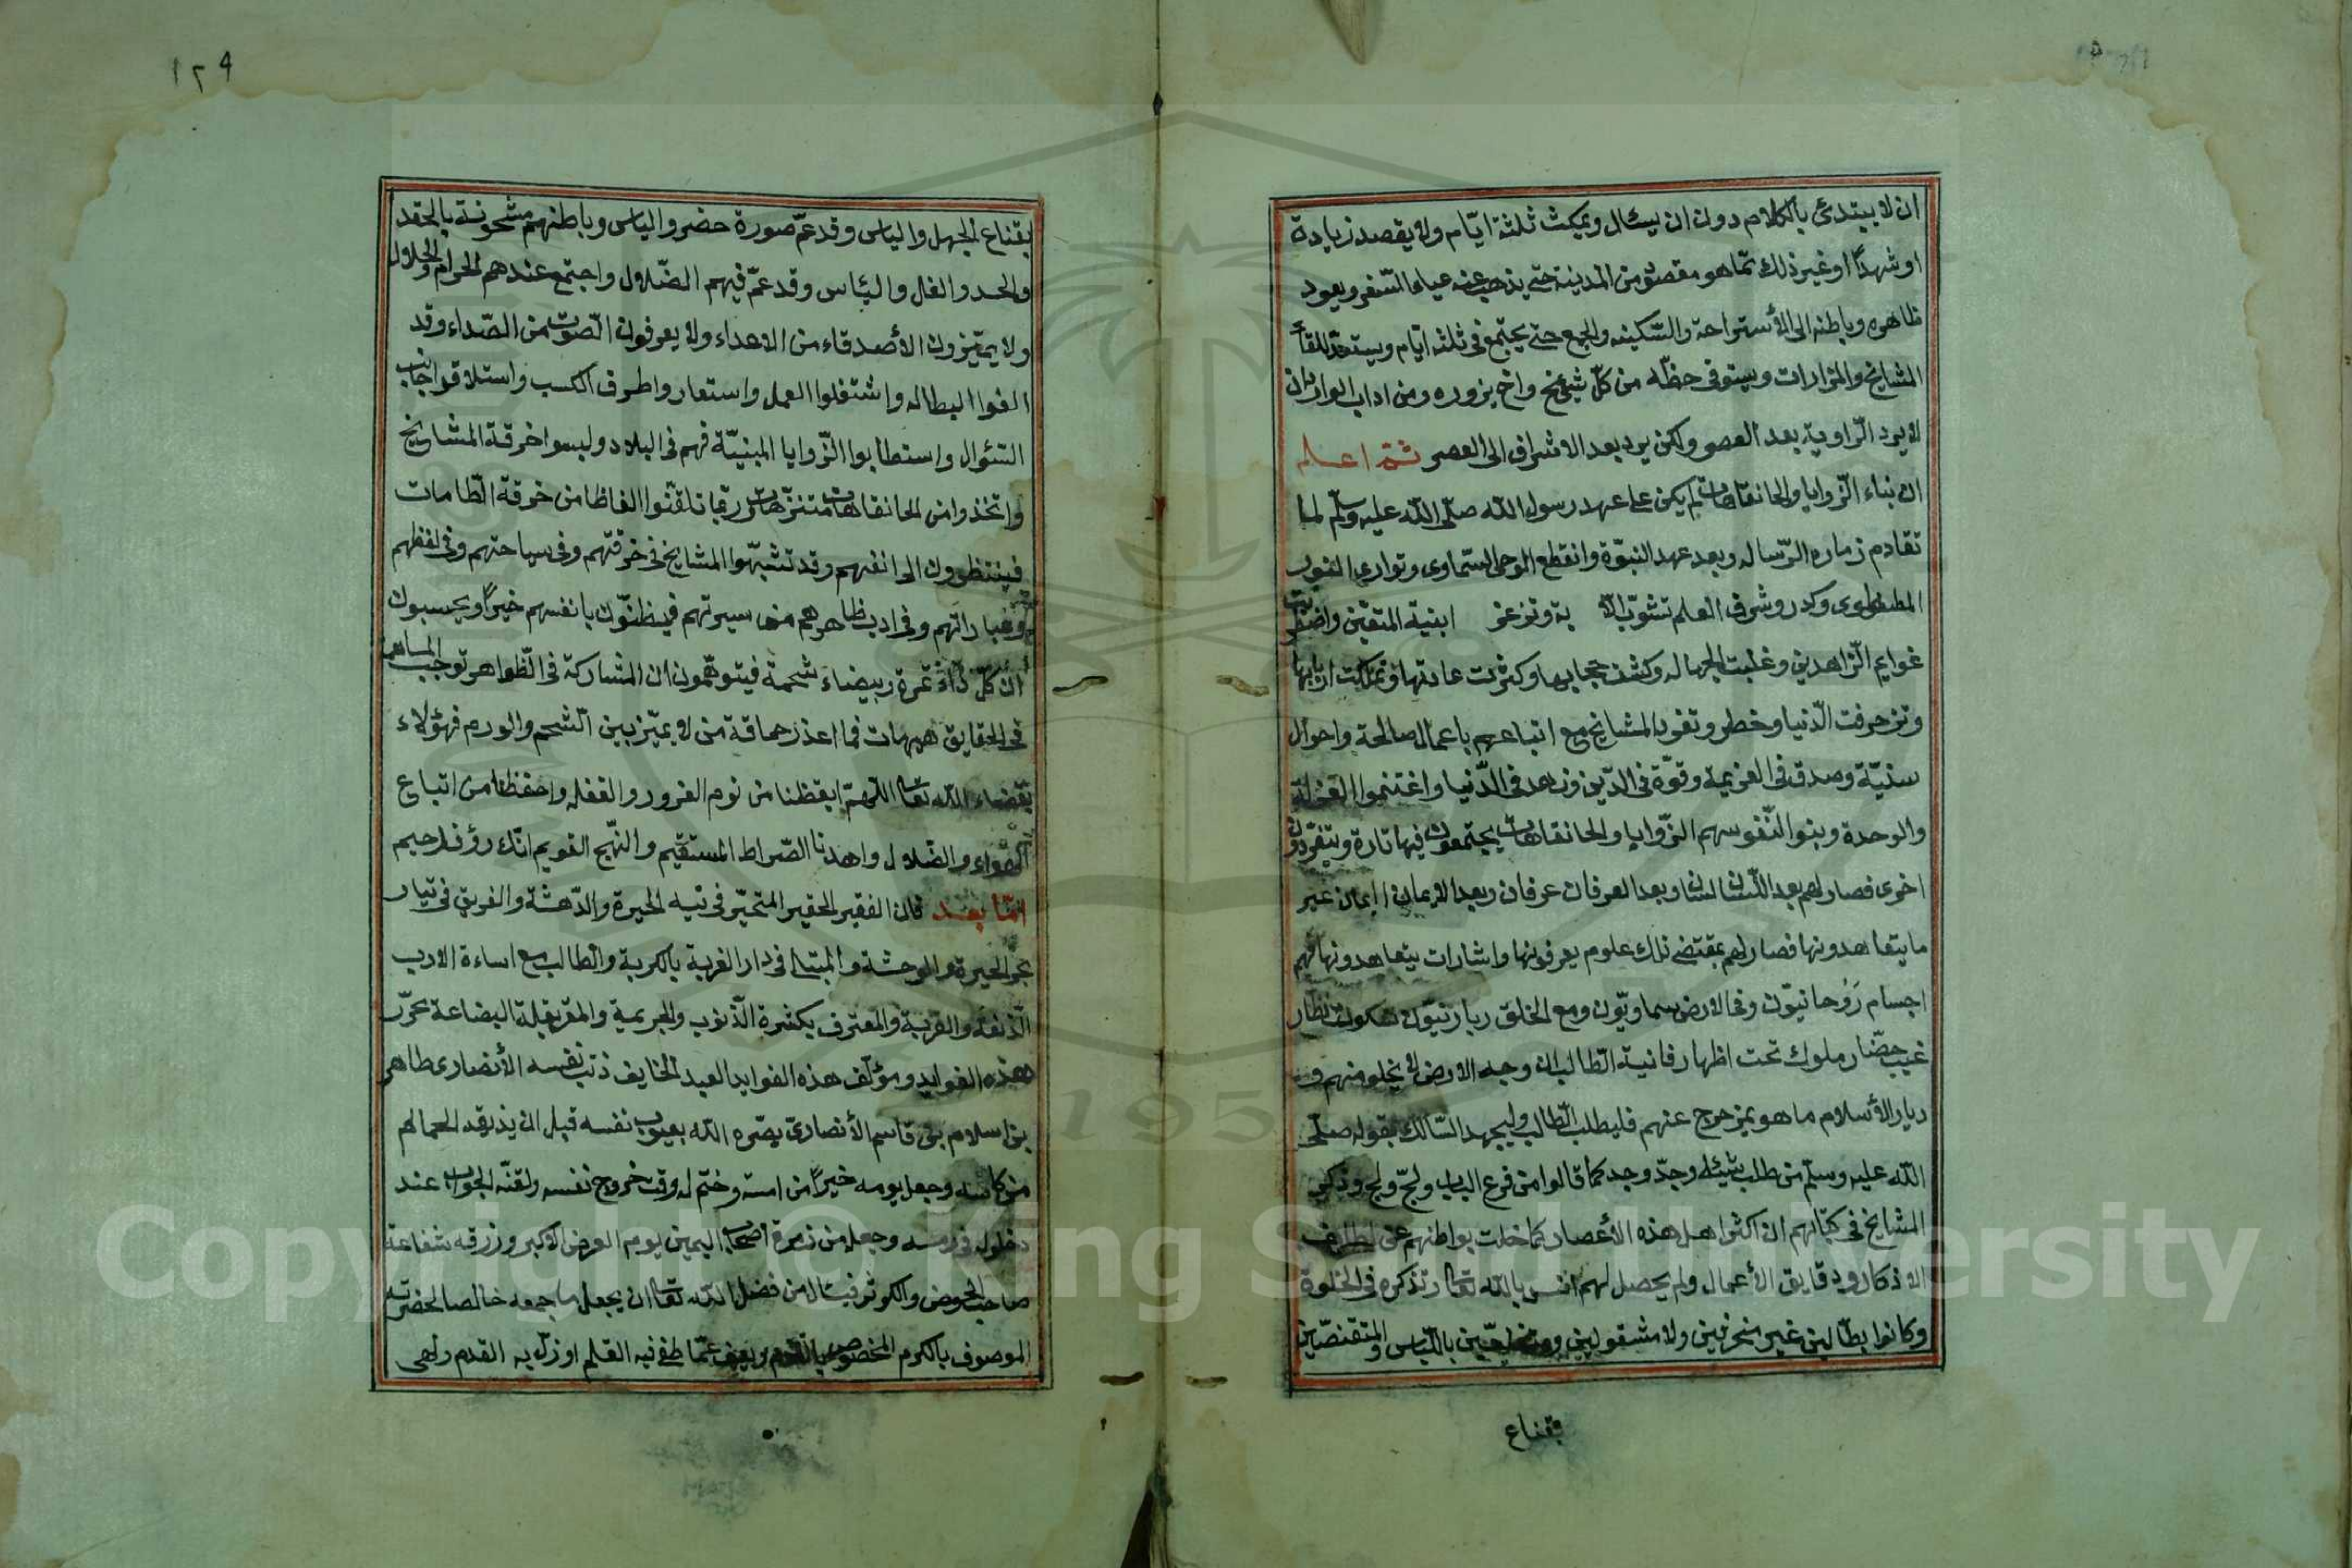 ان لا يبتدئ بالكلام دون ان يسئال ويمكث ثلثة ايّام ولا يقصد زيادة
او شهدًا او غير ذلك ممّا هو مقصوده من المدينة حتى يذهب عنه عياء السّفر ويعود
ظاهره وباطنه الى الأستراحة والسّكينه والجمع حتى يجتمع فى ثلثه ايّام ويستعدّ للقاء
المشايخ والمزارات ويستوفى حظّه من كلّ شيخ واخ يزوره ومن اداب الوارد ان
لا يرد الزّاوية بعد العصر ولكن يرد بعد الاشراق الى العصر ثمّ اعلم
ان بناء الزّوايا والخانقاهات لم يكن على عهد رسول الله صلّى الله عليه وسلّم لما
تقادم زمان الرّساله وبعد عهد النبوّة وانقطع الوحى السّماوى وتوارى النور
المصطفوى وكدر وشرف العلم وتزعزع ابنية المتقين
الزّاهدين وغلبت الجهاله وكشف حجابها وكثرت عادتها وتملكت اربابها
وتزخرفت الدّنيا وخطر وتفرد المشايخ مع اتباعهم باعمال صالحة واحوال
سنيّة وصدق فى العزيمة وقوّة فى الدّين وزهد فى الدّنيا واغتنموا العزلة
والوحدة وبنوا لنّفوسهم الزّوايا والخانقاهات يجتمعون فيها تارة ويتفرّدون
اخرى فصار لهم بعد اللّسان لسان وبعد العرفان عرفان وبعد الايمان ايمان غير
ما يتعاهدونها فصار لهم بمقتضى ذلك علوم يعرفونها واشارات يتعاهدونها فهم
اجسام رَوُحانيّون وفى الارض سماويّون ومع الخلق ربانيّون سكوت نظّار
غيب حضّار ملوك تحت اظهار فانيته الطّالب ان وجه الارض لا يخلو منهم وفى
ديار الأسلام ما هو بمزحرج عنهم فليطلب الطّالب وليجهد السّالك بقوله صلّى
الله عليه وسلّم من طلب شيئا وجدّ وجد كما قالوا من قرع الباب ولجّ ولج وذكر
المشايخ فى كتابهم ان اكثر اهل هذه الأعصار كما خلت بواطنهم عن لطايف
الاذكار ودقايق الأعمال ولم يحصل لهم انس بالله تعالى وتذكره فى الخلوة
وكانوا بطّالين غير متحرفين ولا مشغولين باللّباس والمتقنصّين
بقناع
١٢٩
بقناع الجهل والياس وقد عمّ صورة خضر والياس وباطنهم مشحونة بالحقد
والحسد والغل والبئاس وقد عمّ فيهم الضّلال واجتمع عندهم الحرام والحلال
ولا يميّزون الأصدقاء من الاعداء ولا يعرفون الصّوت من الصّداء وقد
الفوا البطاله واشتغلوا العمل واستعار واطرف الكسب واستلا قوا جانب
السّئوال واستطابوا الزّوايا المبنيّة فهم فى البلاد ولبسوا خرقة المشايخ
واتخذوا من الخانقاهات متنزّهات وربّما تلقّنوا الفاظا من خرقة الطّامات
فينظرون الى انفسهم وقد تشبّهوا المشايخ فى خرقتهم وفى سياحتهم وفى لفظهم
وعباراتهم وفى اداب ظاهرهم من سيرتهم فيظنّون بانفسهم خيرًا ويحسبون
انّ كلّ تمرة وبيضاء شحمة فيتوهّمون ان المشاركة فى الظّواهر توجب المساهمة
فى الحقايق هيهات فما اعذر حماقة من لا يميّز بين الشحم والورم فهؤلاء
الله تعالى اللّهمّ ايقظنا من نوم الغرور والغفله واحفظنا من اتباع
والضّلال واهدنا الصّراط المستقيم والنّهج القويم انّك رؤف رحيم
امّا بعد فان الفقير الحقير المتحيّر فى تيه الحيرة والدّهشة والغريق فى تيار
بحر الحيرة والوحشة والمبتلى فى دار الغربة بالكربة والطالب مع اساءة الادب
الزّلفة والقربة والمعترف بكثرة الذّنوب والجريمة والمقرّ بقلة البضاعة محرّر
هذه الفوايد ومؤلّف هذه الفوايد العبد الخايف ذنب نفسه الأنصارى طاهر
بن اسلام بن قاسم الأنصارى بصّره الله بعيوب نفسه قبل ان يذيقه الحمام
من كاسه وجعل يومه خيرًا من امسه وختم له وقت خروج نفسه ولقنّه الجواب عند
دخوله فى رمسه وجعله من زمرة اصحاب اليمين يوم العرض الاكبر ورزقه شفاعة
صاحب الحوض والكوثر فيسال من فضل الله تعالى ان يجعل ما جمعه خالصا لحضرته
الموصوف بالكرم المخصوص بالقدم ويعف عمّا طغى فيه القلم او زلّ به القدم